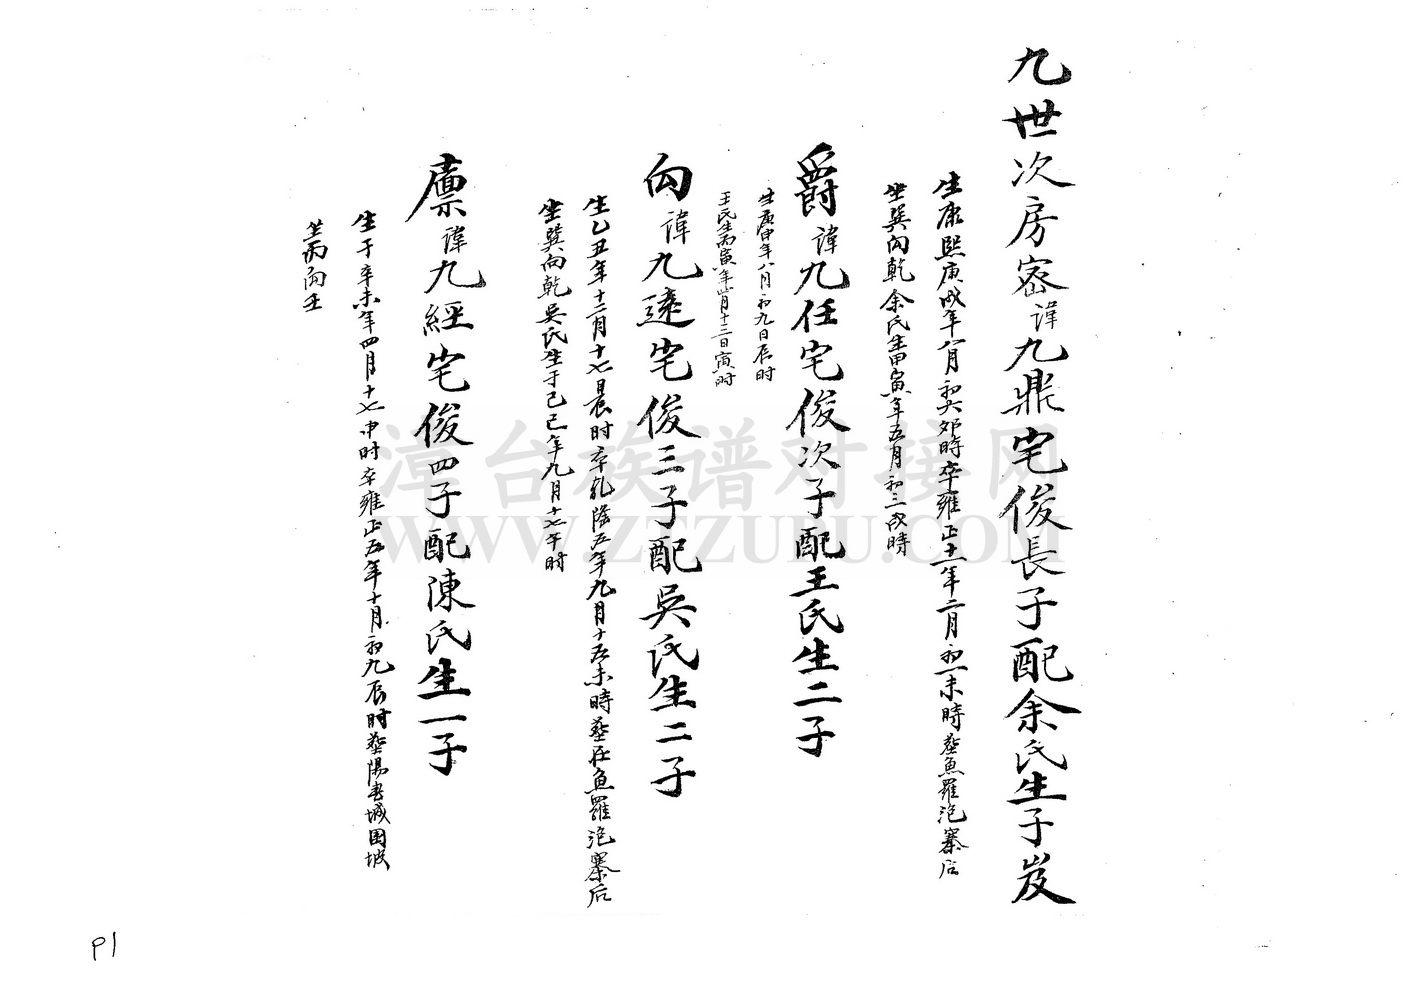 九世次房密諱九鼎宅俊長子配余氏生子岌
生康熙庚戌年八月初六卯時卒雍正十一年二月初一未時葬魚羅滝寨后
坐巽向乾余氏生甲寅年五月初三戌時
爵諱九任宅俊次子配王氏生二子
生庚申年八月初九日辰时
王氏生丙寅年 月十二日寅时
向諱九逵宅俊三子配吳氏生二子
生乙丑年十二月十七晨时卒乾隆五年九月十五未時葬在魚羅滝寨后
坐巽向乾吳氏生于己巳年九月十七午時
廪諱九經宅俊四子配陳氏生一子
生于辛未年四月十七申时卒雍正五年十月初九辰时葬陽 城围坡
坐丙向壬
漳台族谱对接网
WWW.ZTZUPU.COM
P1